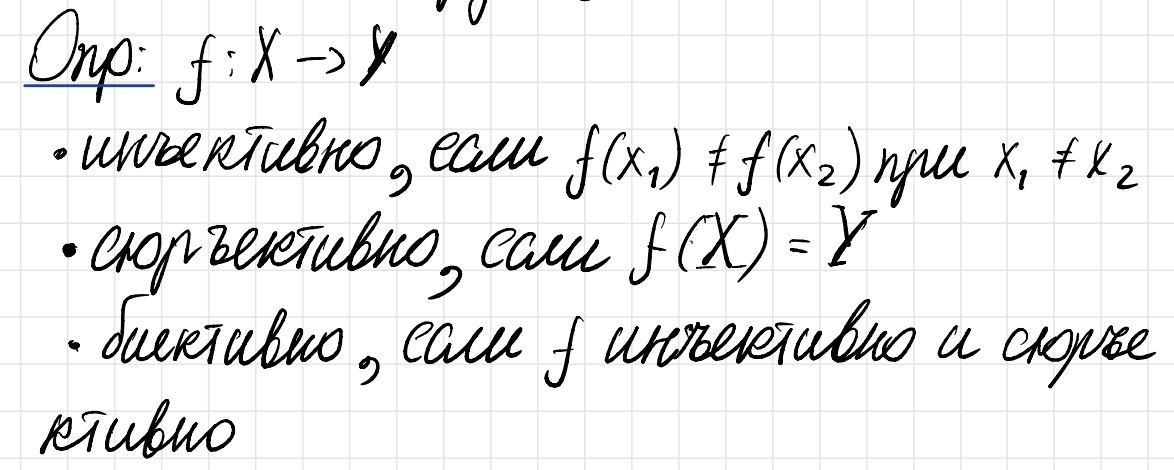 Опр: f : X → Y
• инъективно, если f(x₁) ≠ f(x₂) при x₁ ≠ x₂
• сюръективно, если f(X) = Y
• биективно, если f инъективно и сюръе
ктивно